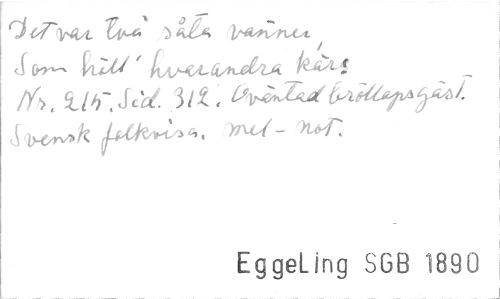 Det var två såta vänner,
Som höll' hvarandra kär:
Nr. 215. Sid. 312. Oväntad bröllopsgäst.
Svensk folkvisa. mel-not.
EggeLing SGB 1890